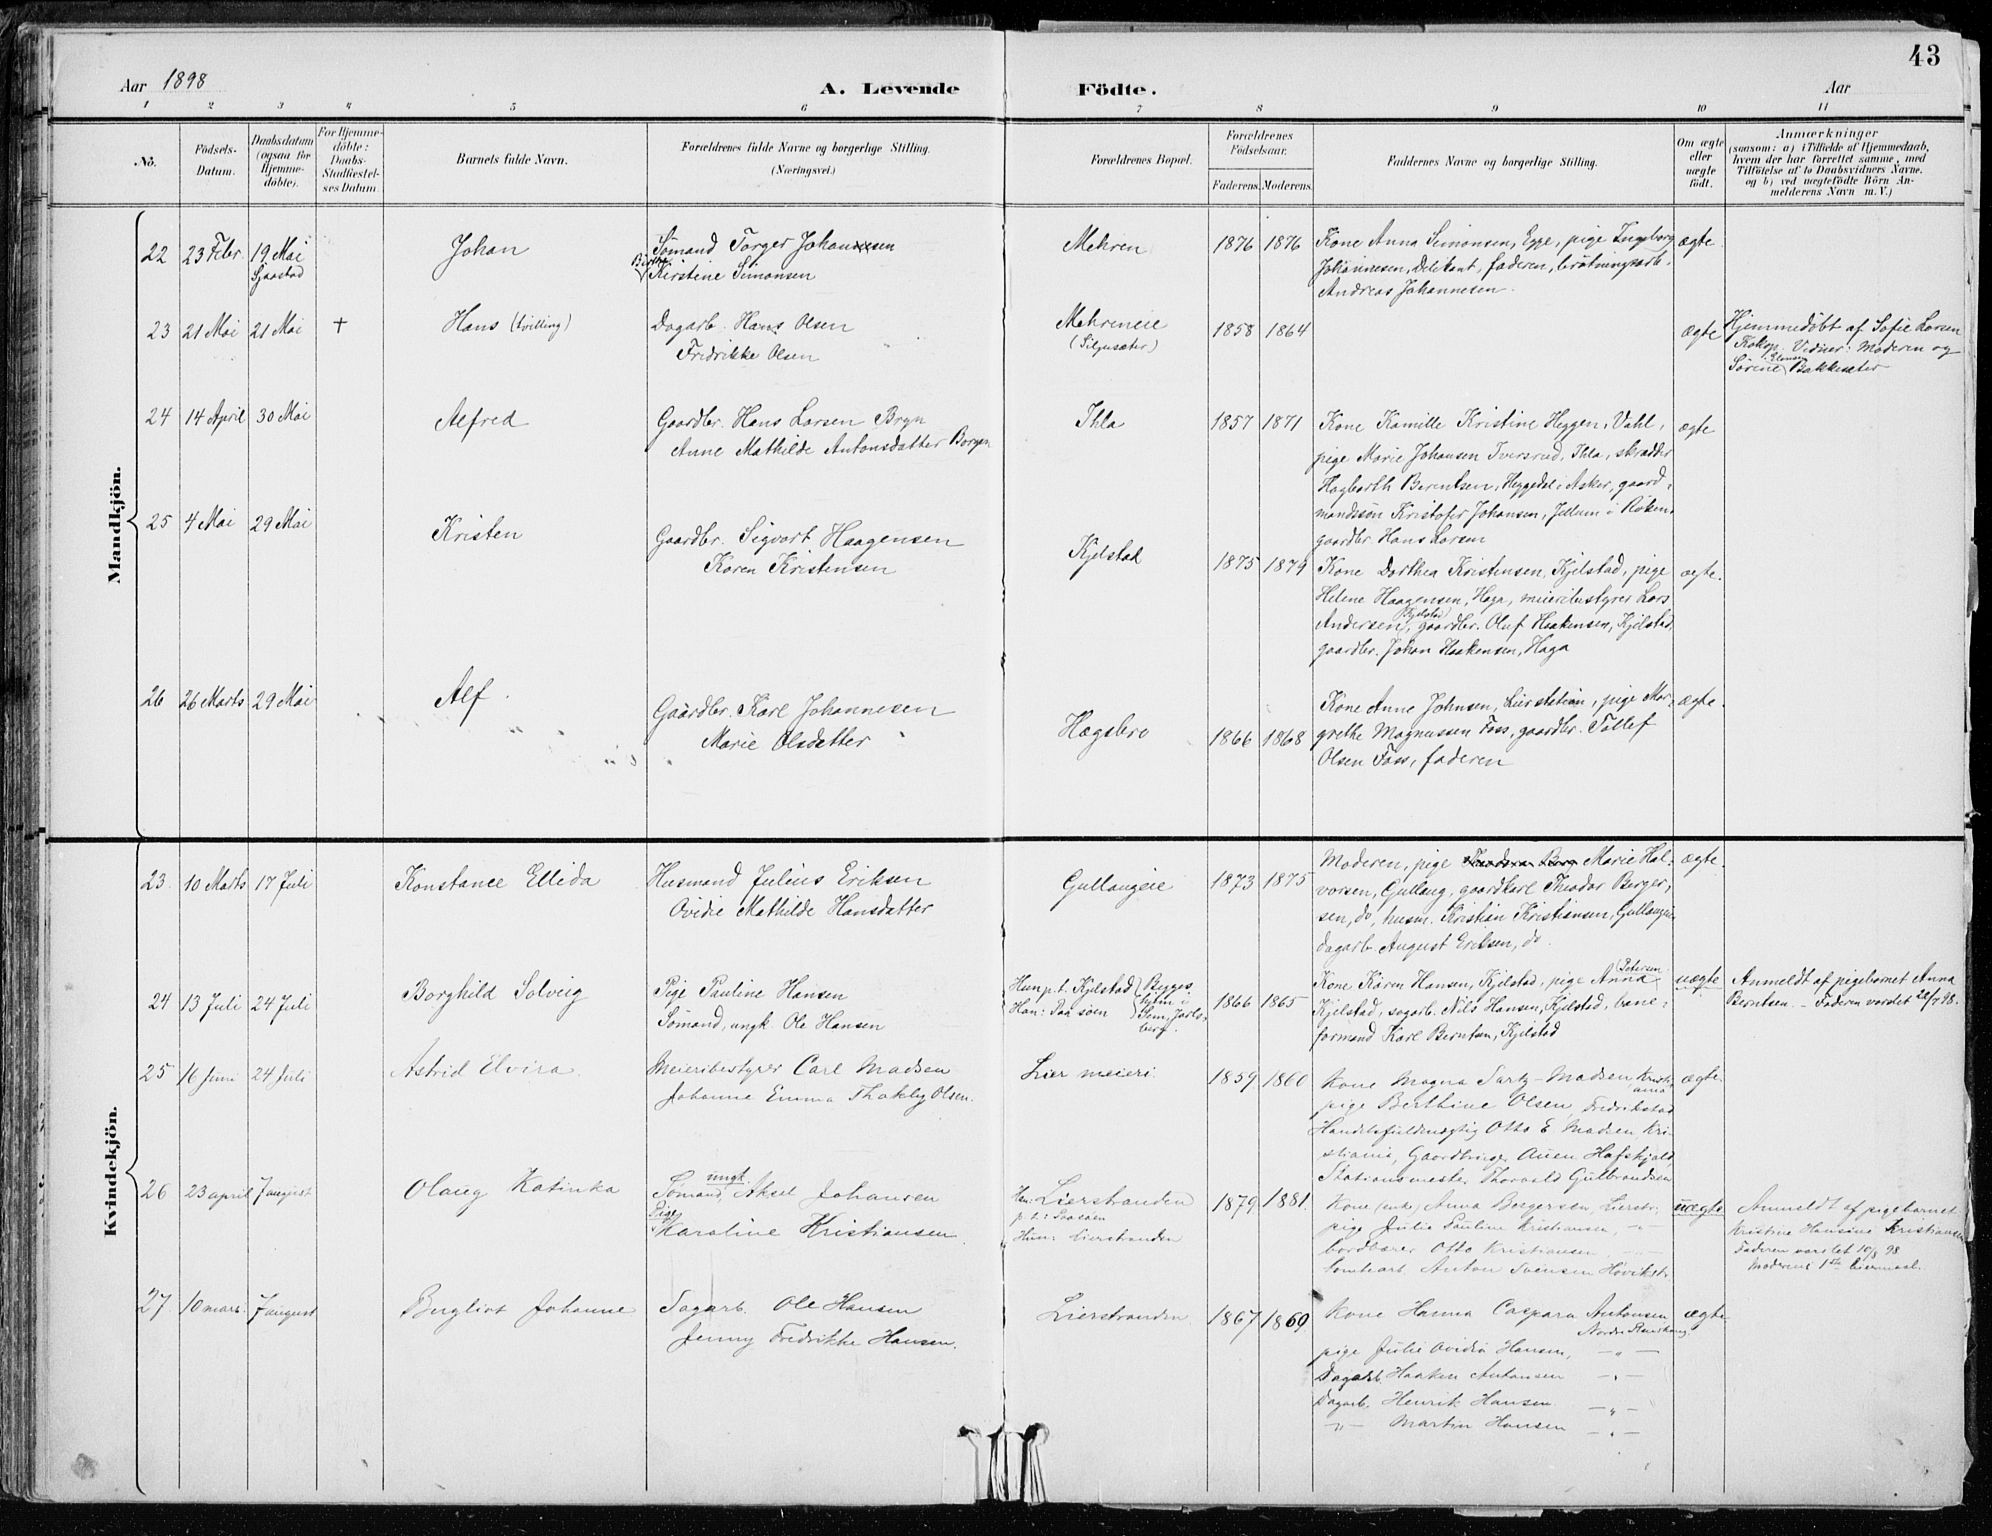 43
Aar 1898
A. Levende Födte.
Aar
1 2 3 4 5 6 7 8 9 10 11
No.
Födsels-Datum.
Daabsdatum (ogsaa for Hjemmedöbte).
For Hjemmedöbte: Daabs-Stadfæstelses Datum.
Barnets fulde Navn.
Forældrenes fulde Navne og borgerlige Stilling.
(Næringsvei.)
Forældrenes Bopæl.
Forældrenes Födselsaar.
Faderens. Moderens.
Faddernes Navne og borgerlige Stilling.
Om ægte eller uægte födt.
Anmærkninger
(saasom: a) i Tilfælde af Hjemmedaab, hvem der har forrettet samme, med Tilföielse af to Daabsvidners Navne, og b) ved uægtefödte Börn Anmelderens Navn m. V.)
Mandkjön.
22 23 Febr. 19 Mai Sjaastad
Johan
Sømand Torger Johannesen
Birthe Kirstine Simonsen
Mehren
1876 1876
Kone Anna Simonsen, Egge, pige Ingeborg
Johannesen, Delikant, faderen, brøtningsarb.
Andreas Johannesen.
ægte.
23 21 Mai 21 Mai +
Hans (tvilling)
Dagarb. Hans Olsen
Fredrikke Olsen
Mehreneie
(Siljusæter)
1858 1864
ægte
Hjemmedøbt af Sofie Larsen
Kokop. Vidner: Moderen og
Sørine Bakkesæter
24 14 April 30 Mai
Alfred
Gaardbr. Hans Larsen Bryn
Anne Mathilde Antonsdatter Borgen
Ihla
1857 1871
Kone Kamille Kristine Heggen, Vahl,
pige Marie Johansen Tversrud, Ihla, skrædder
Hagbarth Berentsen, Heggedal i Asker, gaard-
mandssøn Kristofer Johansen, Jellum i Røken,
gaardbr. Hans Larsen
ægte
25 4 Mai 29 Mai
Kristen
Gaardbr. Sigvart Haagensen
Karen Kristensen
Kjelstad
1875 1879
Kone Dorthea Kristensen, Kjelstad, pige
Helene Haagensen, Haga, meieribestyrer Lars
Andersen, (Kjelstad) gaardbr. Oluf Haakensen, Kjelstad,
gaardbr. Johan Haakensen, Haga
ægte.
26 26 Marts 29 Mai
Alf.
Gaardbr. Karl Johannesen
Marie Olsdatter
Hægsbro
1866 1868
Kone Anne Johnsen, Lier station, pige Mar-
grethe Magnussen Foss, gaardbr. Tollef
Olsen Foss, faderen
ægte.
Kvindekjön.
23. 10 Marts 17 Juli
Konstance Ellida
Husmand Julius Eriksen
Ovidie Mathilde Hansdatter
Gullaugeie
1873 1875
Moderen, pige Marie Hal-
vorsen, Gullaug, gaardkarl Theodor Berger-
sen, do, husm. Kristian Kristiansen, Gullaugeie
dagarb. August Eriksen, do.
ægte.
24 13 Juli 24 Juli
Borghild Solveig
Pige Pauline Hansen
Sømand, ungk. Ole Hansen
Hun p.t. Kjelstad
Han: Paa søen
Bergeshjem i Sem, Jarlsberg.
1866 1865
Kone Karen Hansen, Kjelstad, pige Anna (Petersen
Kjelstad, sagarb. Nils Hansen, Kjelstad, bane-
formand Karl Berntsen, Kjelstad
uægte
Anmeldt af pigebarnet Anna
Berntsen. – Faderen varslet 26/7 98.
25 16 Juni 24 Juli
Astrid Elvira.
Meieribestyrer Carl Madsen
Johanne Emma Thakley Olsen.
Lier meieri.
1859 1860
Kone Magna Sartz-Madsen, Kristiania
pige Berthine Olsen, Fredrikstad
Handelsfuldmægtig Otto E. Madsen, Kri-
stiania, Gaardbruger Auen Hafskjold,
Stationsmester Thorvald Gulbrandsen
ægte.
26 23 april 7 august
Olaug Katinka
Sømand, ungk. Aksel Johansen
Pige Karoline Kristiansen
Han: Lierstranden
p.t.: Paa søen
Hun: Lierstranden
1879 1881.
Kone (enke) Anna Bergersen, Lierstr.
pige Julie Pauline Kristiansen, – " –
bordbærer Otto Kristiansen
Tomtearb. Anton Svensen Høvikstr.
uægte
Anmeldt af pigebarnet
Kristine Hansine Kristiansen
Faderen varslet 10/8 98
Moderens 1ste leiermaal.
27 10 mars. 7 august
Bergliot Johanne
Sagarb. Ole Hansen
Jenny Fredrikke Hansen.
Lierstranden.
1867 1869
Kone Hanna Caspara Antonsen
pige Julie Ovidia Hansen, – " –
Dagarb. Haaken Antonsen – " –
Dagarb. Henrik Hansen. – " –
– " – Martin Hansen – " –
ægte